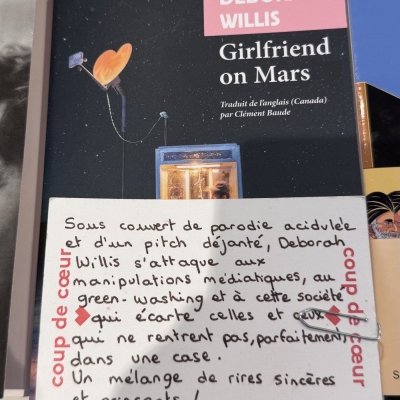 WILLIS
Girlfriend
on Mars
Traduit de l'anglais (Canada)
par Clément Baude
Sous couvert de parodie acidulée
et d'un pitch déjanté, Deborah
Willis s'attaque aux
manipulations médiatiques, au
green-washing et à cette société
qui écarte celles et ceux
qui ne rentrent pas, parfaitement,
dans une case.
Un mélange de rires sincères
coup de cœur
coup de cœur